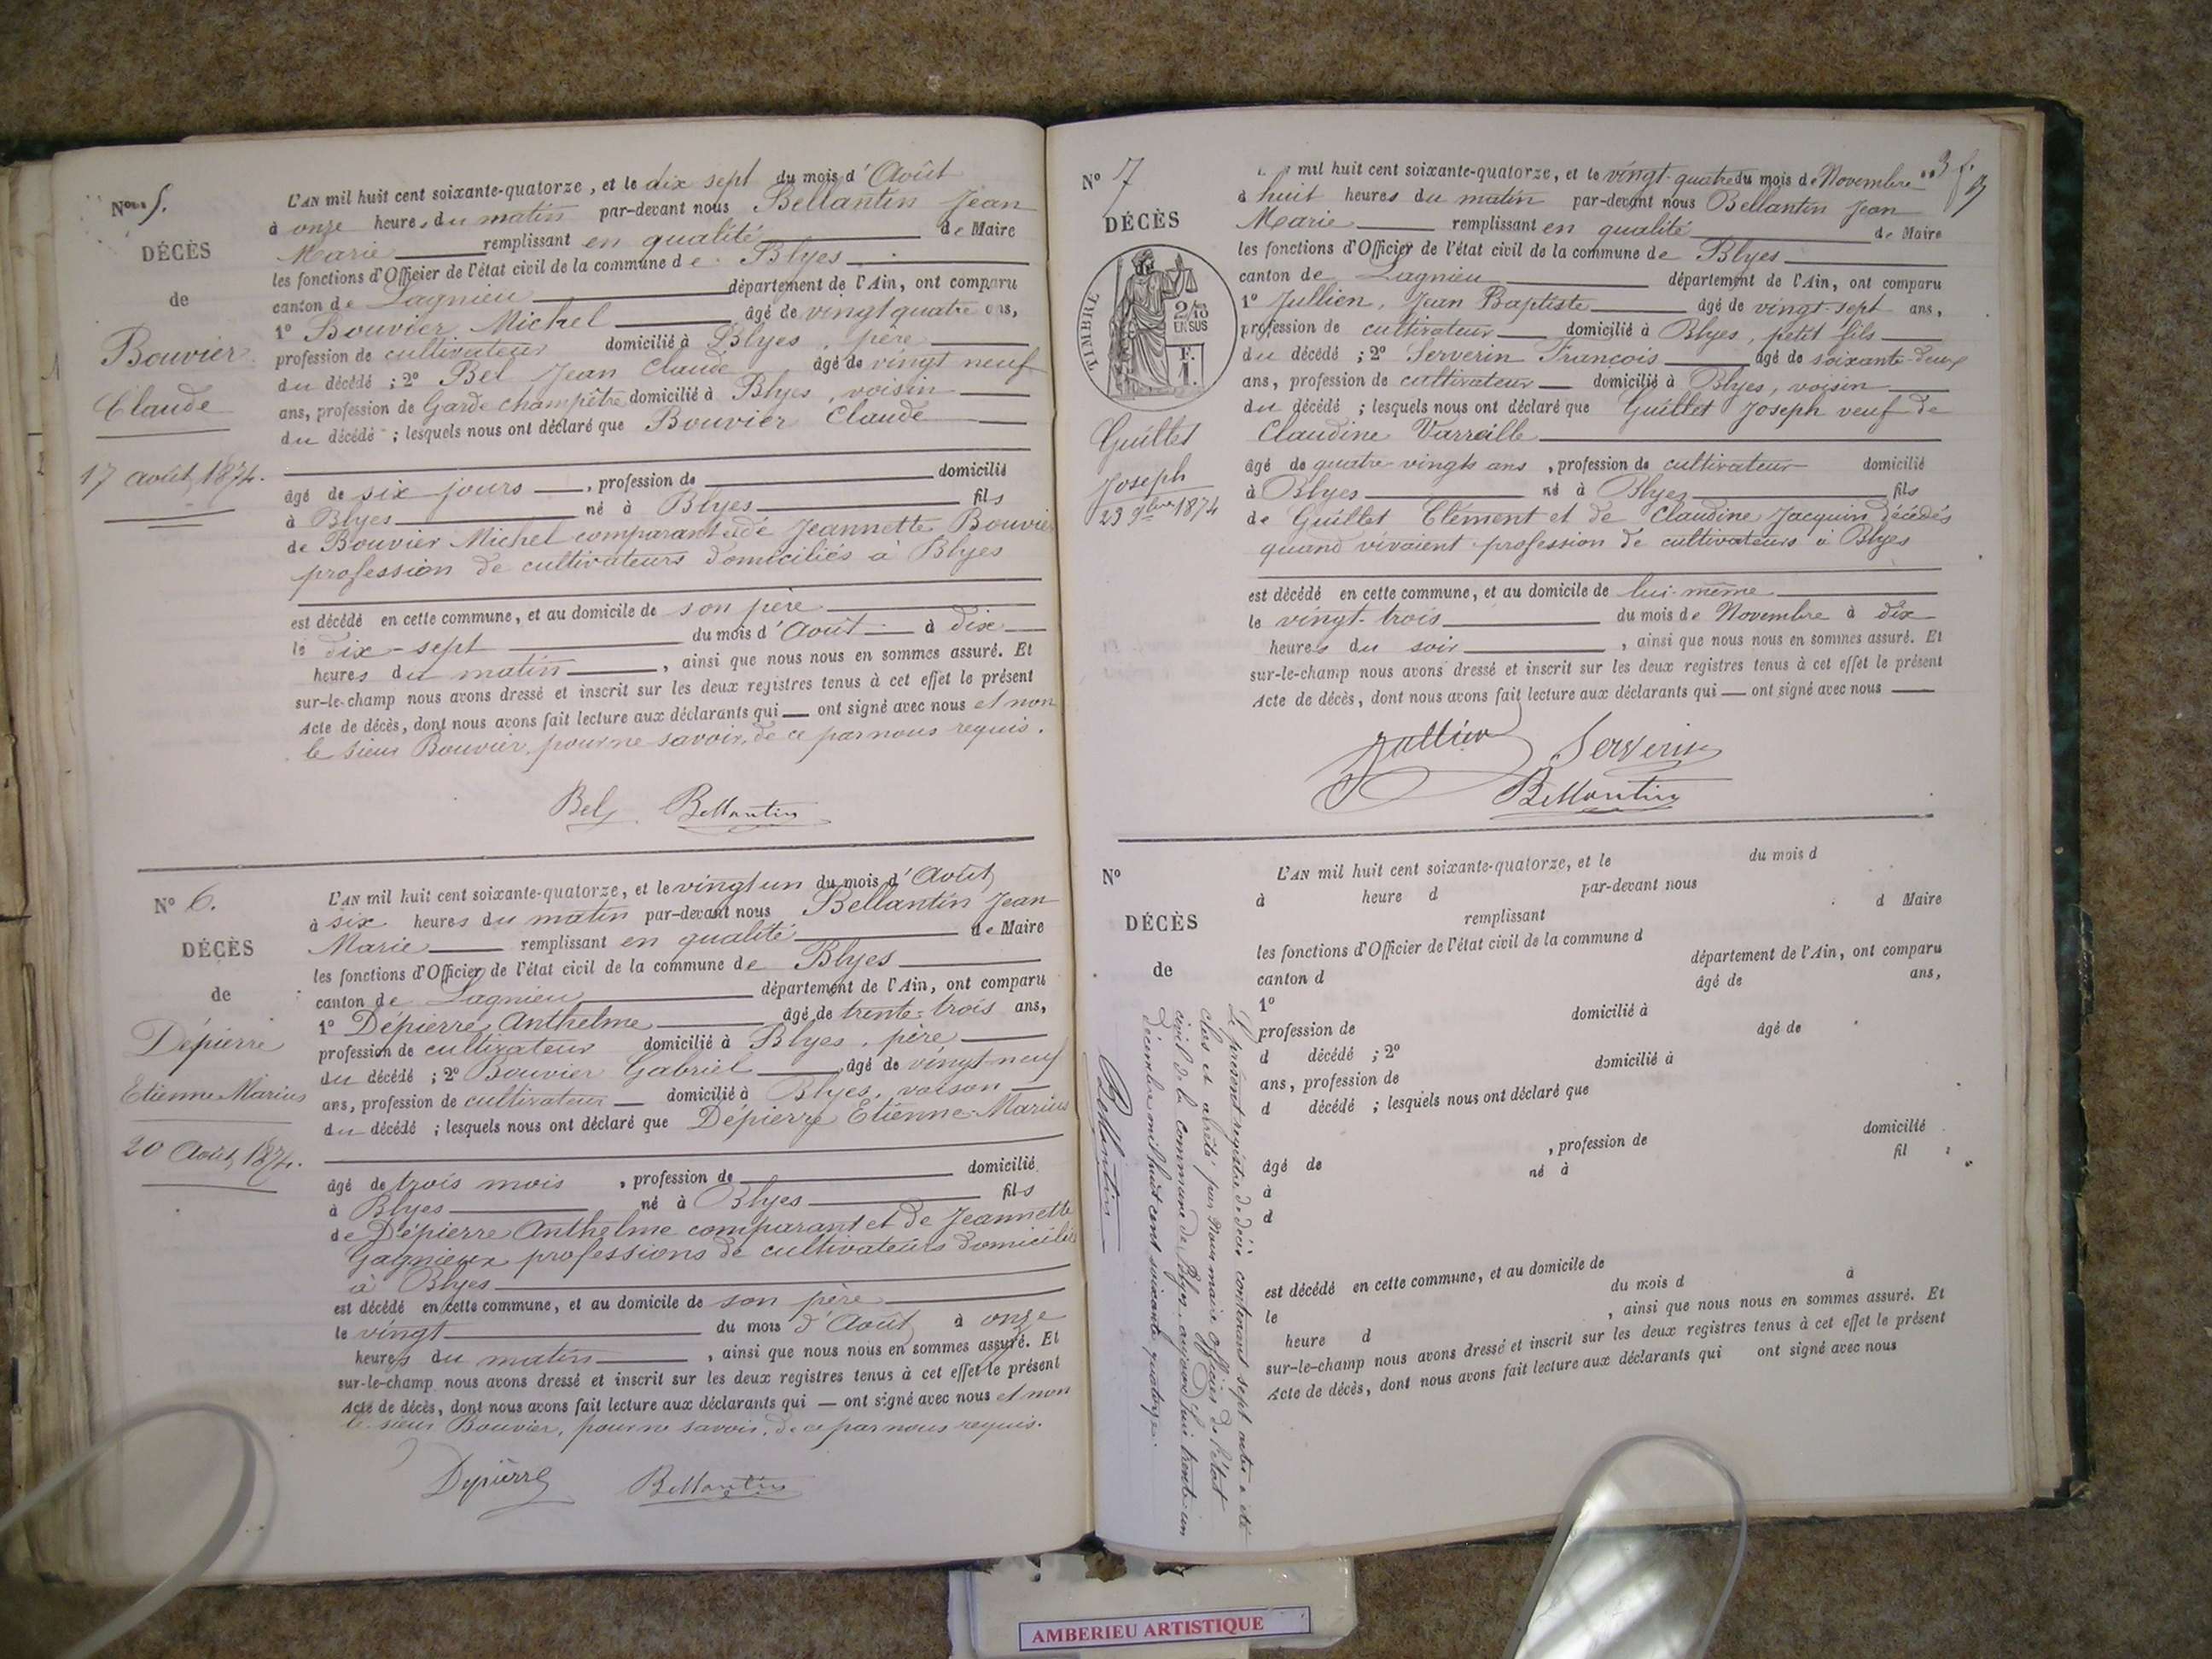 No 5.
DÉCÈS
de
Bouvier
Claude
17 août 1874.
L'AN mil huit cent soixante-quatorze, et le dix sept du mois d'Août
à onze heures du matin par-devant nous Bellantin Jean
Marie remplissant en qualité de Maire
les fonctions d'Officier de l'état civil de la commune de Blyes
canton de Lagnieu département de l'Ain, ont comparu
1º Bouvier Michel âgé de vingt quatre ans,
profession de cultivateur domicilié à Blyes, père
du décédé ; 2º Bel Jean Claude âgé de vingt neuf
ans, profession de Garde champêtre domicilié à Blyes, voisin
du décédé ; lesquels nous ont déclaré que Bouvier Claude
âgé de six jours, profession de domicilié
à Blyes né à Blyes fils
de Bouvier Michel comparant et de Jeannette Bouvier
profession de cultivateurs domiciliés à Blyes
est décédé en cette commune, et au domicile de son père
le dix-sept du mois d'Août à dix
heures du matin, ainsi que nous nous en sommes assuré. Et
sur-le-champ nous avons dressé et inscrit sur les deux registres tenus à cet effet le présent
Acte de décès, dont nous avons fait lecture aux déclarants qui ont signé avec nous et non
le sieur Bouvier, pour ne savoir, de ce par nous requis.
Bel Bellantin
No 6.
DÉCÈS
de
Dépierre
Etienne Marius
20 Août 1874.
L'AN mil huit cent soixante-quatorze, et le vingt un du mois d'Août
à six heures du matin par-devant nous Bellantin Jean
Marie remplissant en qualité de Maire
les fonctions d'Officier de l'état civil de la commune de Blyes
canton de Lagnieu département de l'Ain, ont comparu
1º Dépierre Anthelme âgé de trente-trois ans,
profession de cultivateur domicilié à Blyes, père
du décédé ; 2º Bouvier Gabriel âgé de vingt-neuf
ans, profession de cultivateur domicilié à Blyes, voison
du décédé ; lesquels nous ont déclaré que Dépierre Etienne-Marius
âgé de trois mois, profession de domicilié
à Blyes né à Blyes fils
de Dépierre Anthelme comparant et de Jeannette
Gagnieux professions de cultivateurs domiciliés
à Blyes
est décédé en cette commune, et au domicile de son père
le vingt du mois d'Août à onze
heures du matin, ainsi que nous nous en sommes assuré. Et
sur-le-champ nous avons dressé et inscrit sur les deux registres tenus à cet effet le présent
Acte de décès, dont nous avons fait lecture aux déclarants qui ont signé avec nous et non
le sieur Bouvier, pour ne savoir, de ce par nous requis.
Dépierre Bellantin
No 7
DÉCÈS
TIMBRE
2/10
EN SUS
F.
1.
Guillet
Joseph
23 9bre 1874
mil huit cent soixante-quatorze, et le vingt-quatre du mois de Novembre
à huit heures du matin par-devant nous Bellantin Jean
Marie remplissant en qualité de Maire
les fonctions d'Officier de l'état civil de la commune de Blyes
canton de Lagnieu département de l'Ain, ont comparu
1º Jullien, Jean Baptiste âgé de vingt-sept ans,
profession de cultivateur domicilié à Blyes, petit fils
du décédé ; 2º Serverin François âgé de soixante-deux
ans, profession de cultivateur domicilié à Blyes, voisin
du décédé ; lesquels nous ont déclaré que Guillet Joseph veuf de
Claudine Varreille
âgé de quatre-vingts ans, profession de cultivateur domicilié
à Blyes né à Blyes fils
de Guillet Clément et de Claudine Jacquin décédés
quand vivaient profession de cultivateurs à Blyes
est décédé en cette commune, et au domicile de lui-même
le vingt-trois du mois de Novembre à dix
heures du soir, ainsi que nous nous en sommes assuré. Et
sur-le-champ nous avons dressé et inscrit sur les deux registres tenus à cet effet le présent
Acte de décès, dont nous avons fait lecture aux déclarants qui ont signé avec nous
Jullien Serverin
Bellantin
No
DÉCÈS
de
L'AN mil huit cent soixante-quatorze, et le du mois d
à heure d par-devant nous
remplissant d Maire
les fonctions d'Officier de l'état civil de la commune d
canton d département de l'Ain, ont comparu
1º âgé de ans,
profession de domicilié à
d décédé ; 2º âgé de
ans, profession de domicilié à
d décédé ; lesquels nous ont déclaré que
âgé de , profession de domicilié
à né à fil
d
est décédé en cette commune, et au domicile de
le du mois d à
heure d , ainsi que nous nous en sommes assuré. Et
sur-le-champ nous avons dressé et inscrit sur les deux registres tenus à cet effet le présent
Acte de décès, dont nous avons fait lecture aux déclarants qui ont signé avec nous
Le présent registre de décès contenant sept actes a été
clos et arrêté par Nous maire officier de l'état
civil de la commune de Blyes, aujourd'hui trente-un
décembre mil huit cent soixante quatorze.
Bellantin
AMBERIEU ARTISTIQUE